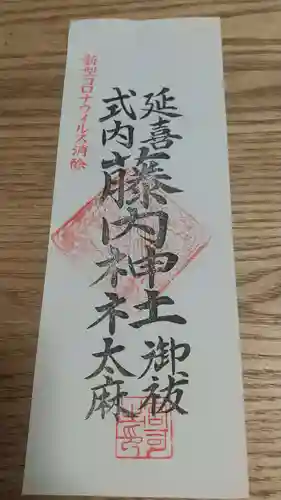 新型コロナウイルス消除
延喜式内
藤内神社
御祓太麻